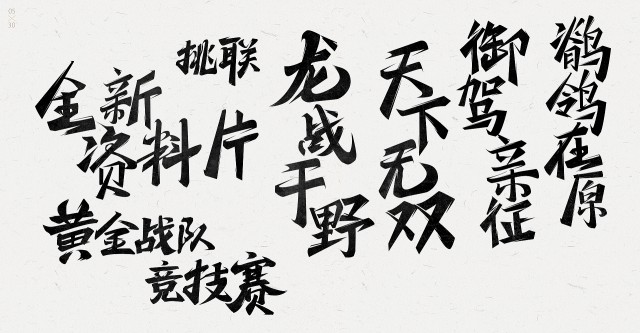 挑联
全新
资料片
黄金战队
竞技赛
龙战于野
天下无双
御驾亲征
鹡鸰在原